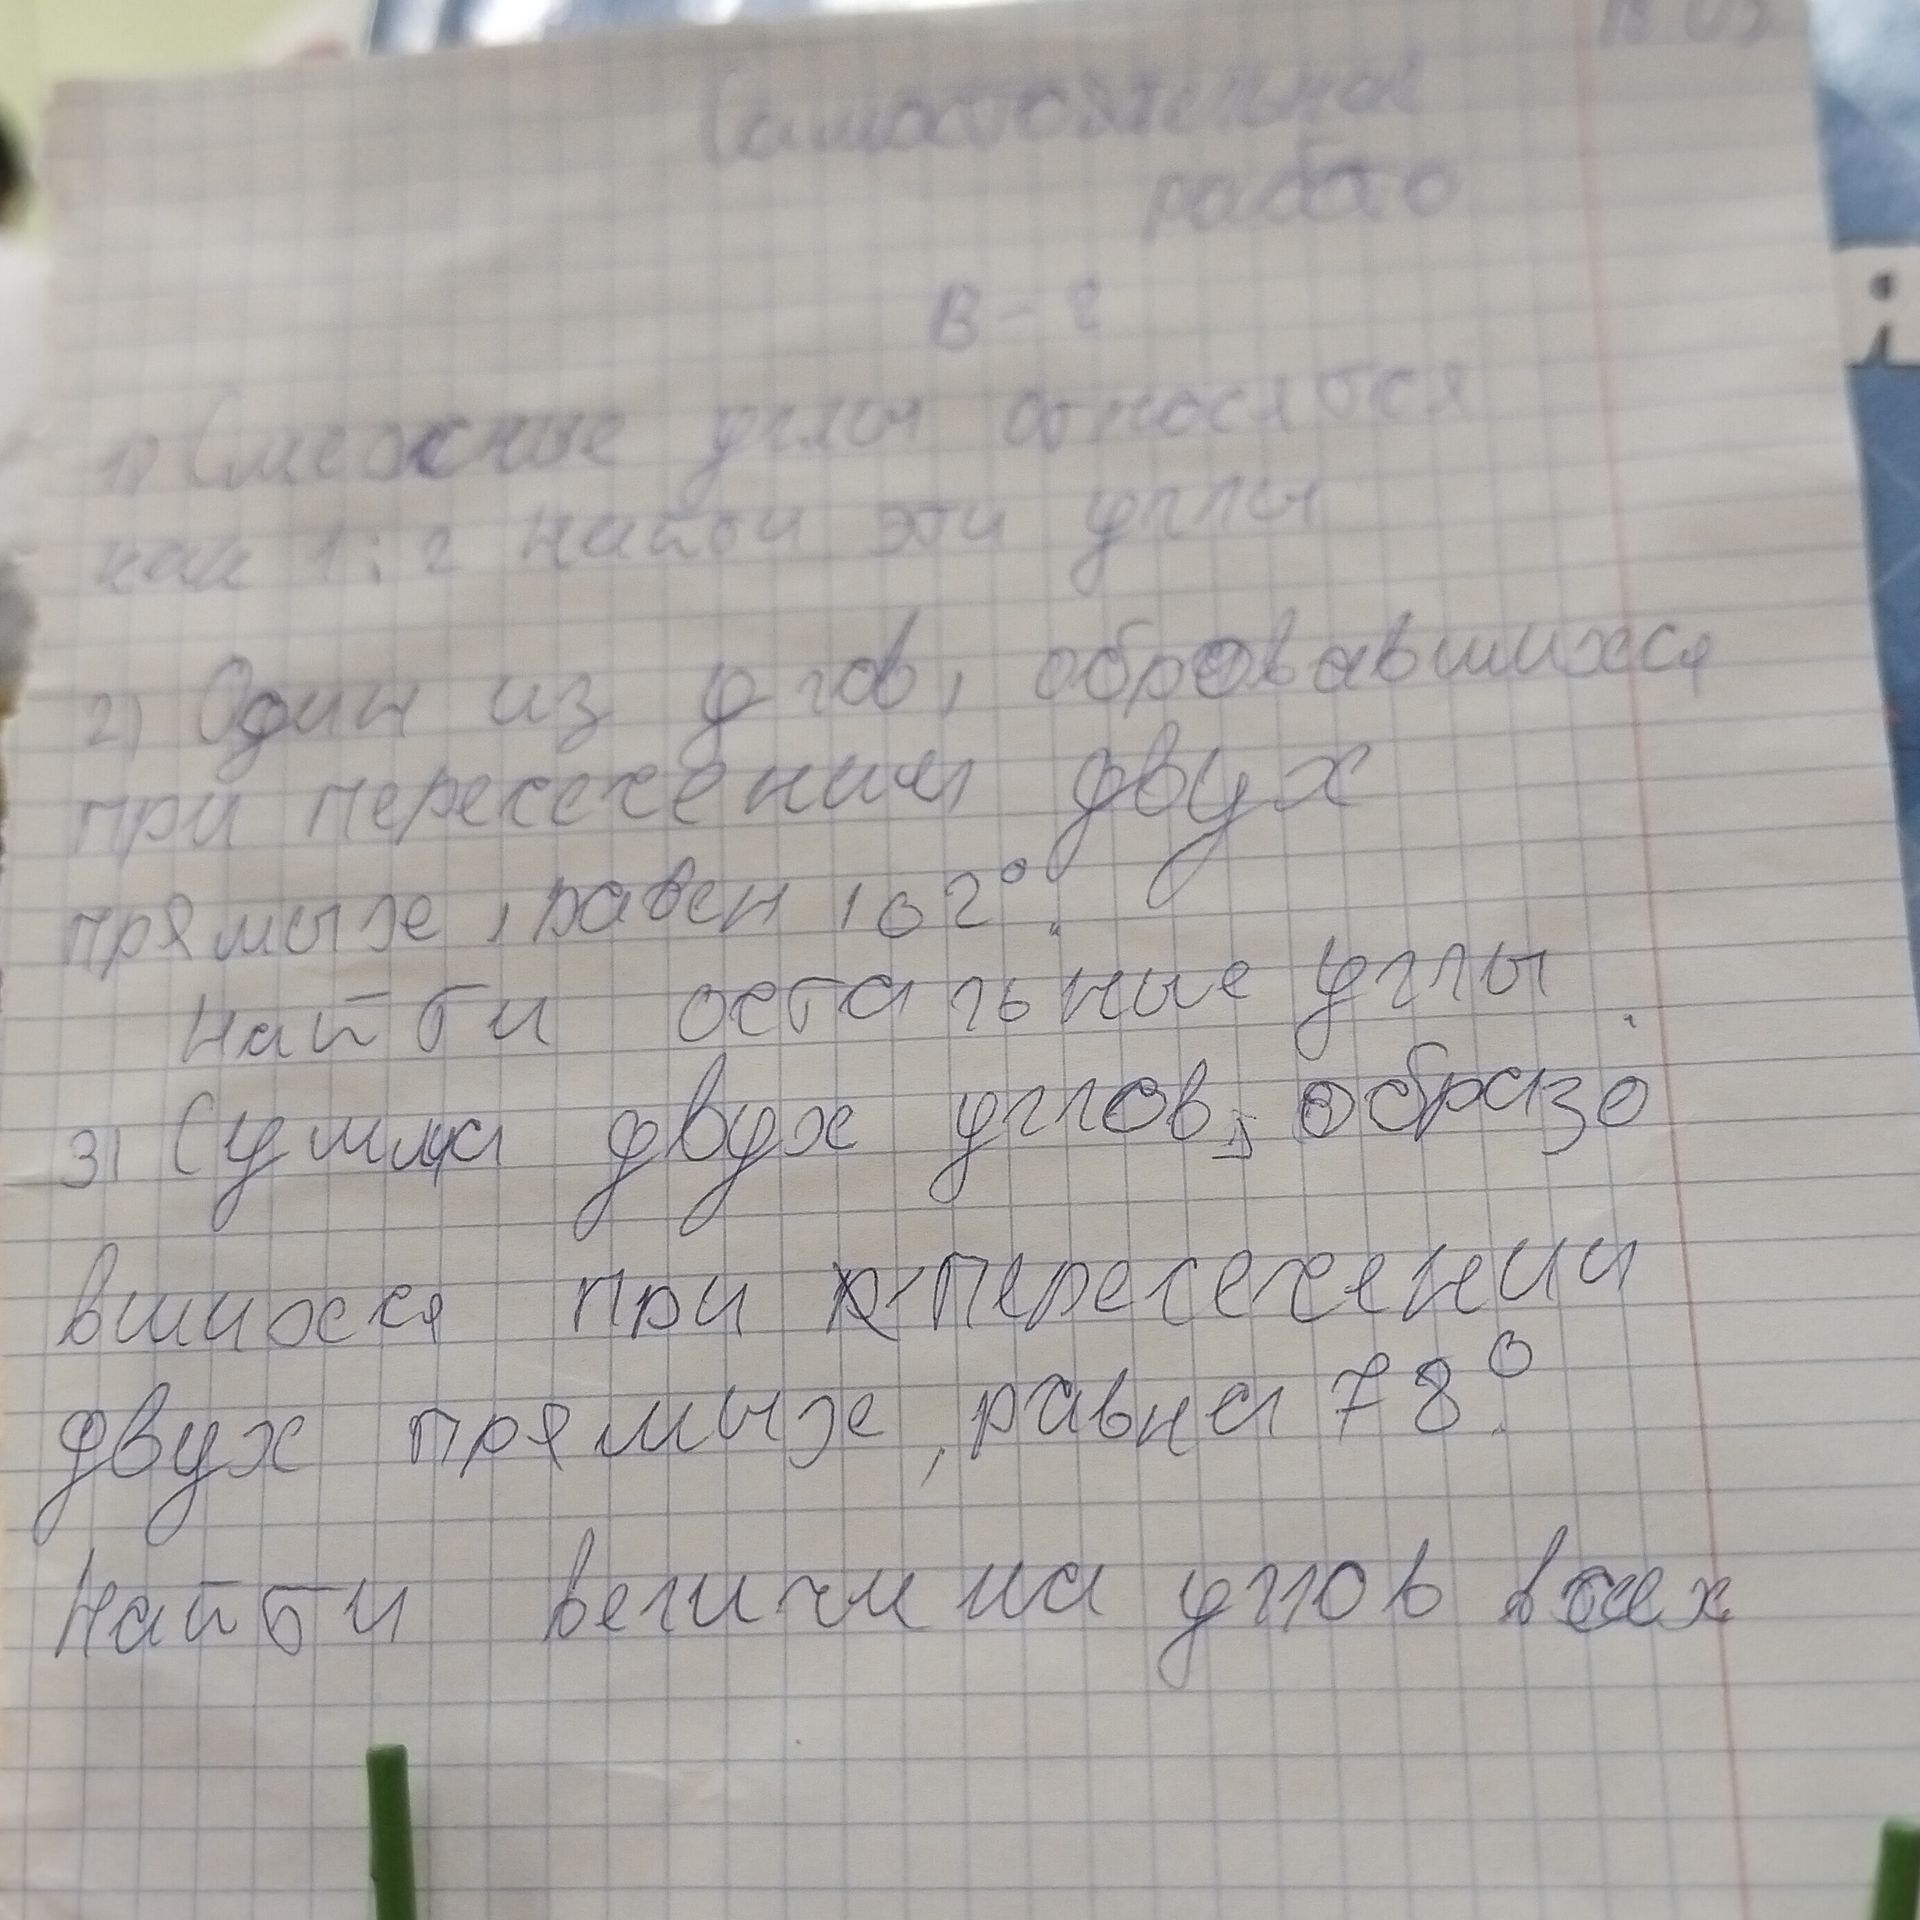 Самостоятельная
работа
В-2
1) Смежные углы относятся
как 1:2 найти эти углы
2) Один из углов, образовавшихся
при пересечении двух
прямых, равен 102°.
найти остальные углы.
3) Сумма двух углов, образо
вшихся при пересечении
двух прямых, равна 78°.
Найти величина углов всех